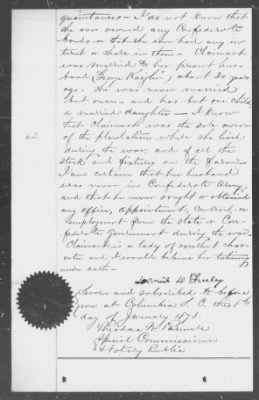 quaintances - I do not know that
she ever owned any Confederate
bonds or that she ever had any in
terest or share in them - Claimant
was married to her present hus-
band, about 20 years
ago. She was never married
but once - and has but one child
a married daughter - I know
that Claimant was the sole owner
of the plantation where she lived
during the war, and of all the
stock and fixtures on the farm
I am certain that her husband
was never in Confederate Army,
and that he never sought or obtained
any office, appointment, contract, or
employment from the State or Con-
federate Government during the war
Claimant is a lady of excellent char-
acter and I would believe her testimony
under oath -
62
Sworn and subscribed to before
me at Columbia S. C. this
day of January 1878.
Theodore W.
Special Commissioner
& Notary Public